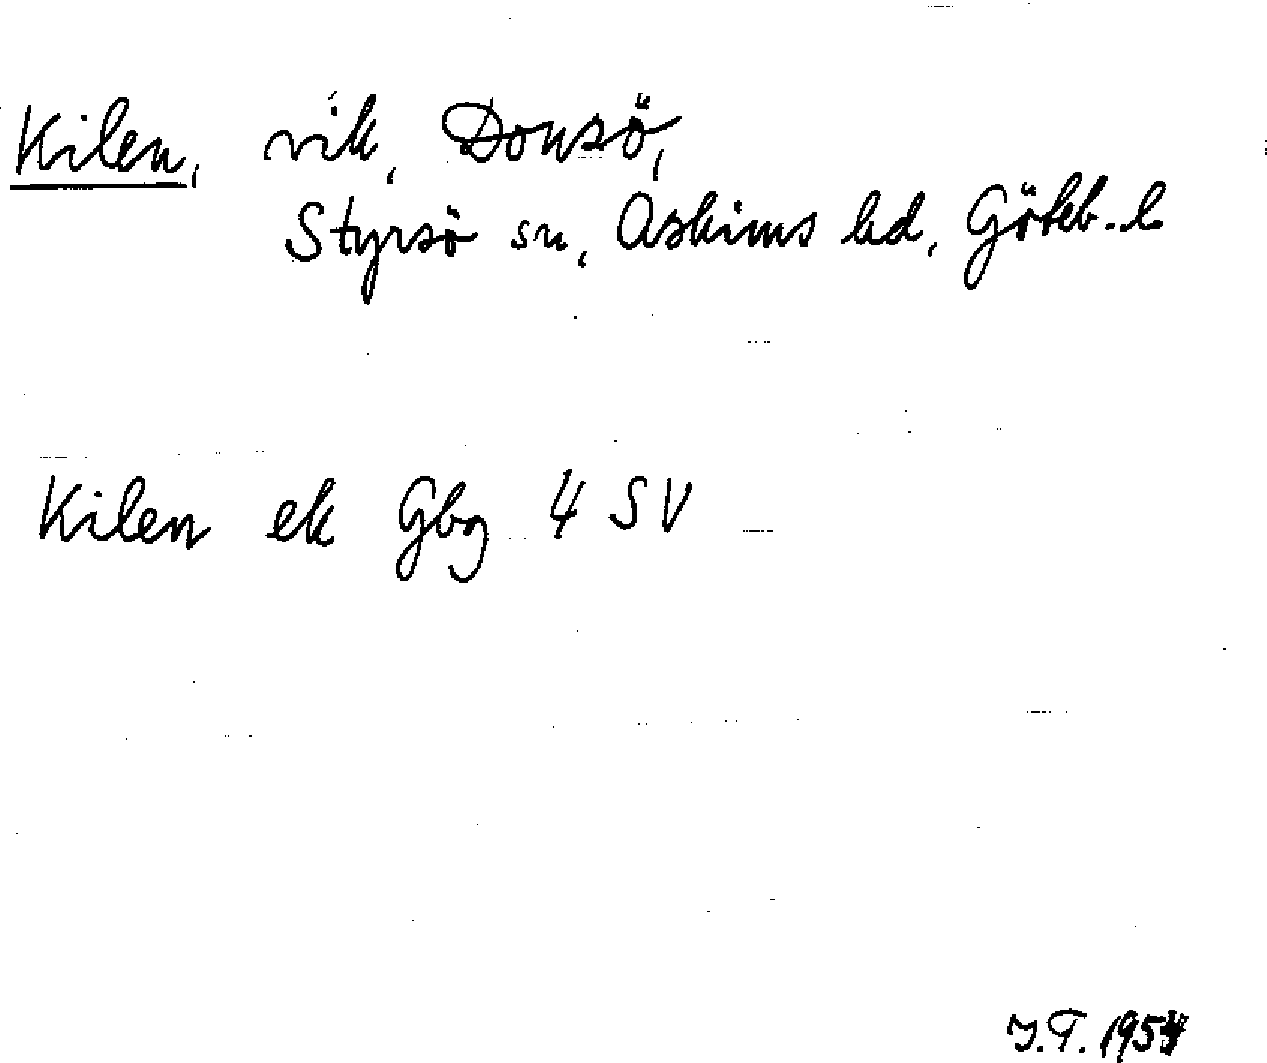 Kilen, vik, Donsö,
Styrsö sn, Askims hd, Göteb. l
Kilen ek Gbg 4 SV
I.T. 1954